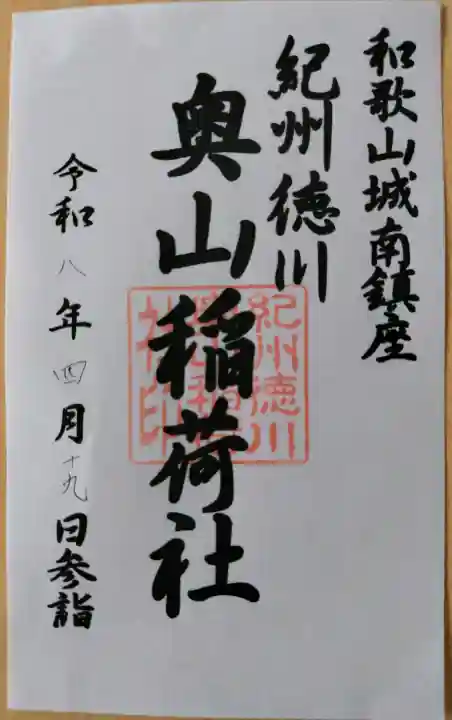 和歌山城南鎮座
紀州徳川
奥山稲荷社
令和八年四月十九日参詣
紀州徳川
奥山稲荷
社印